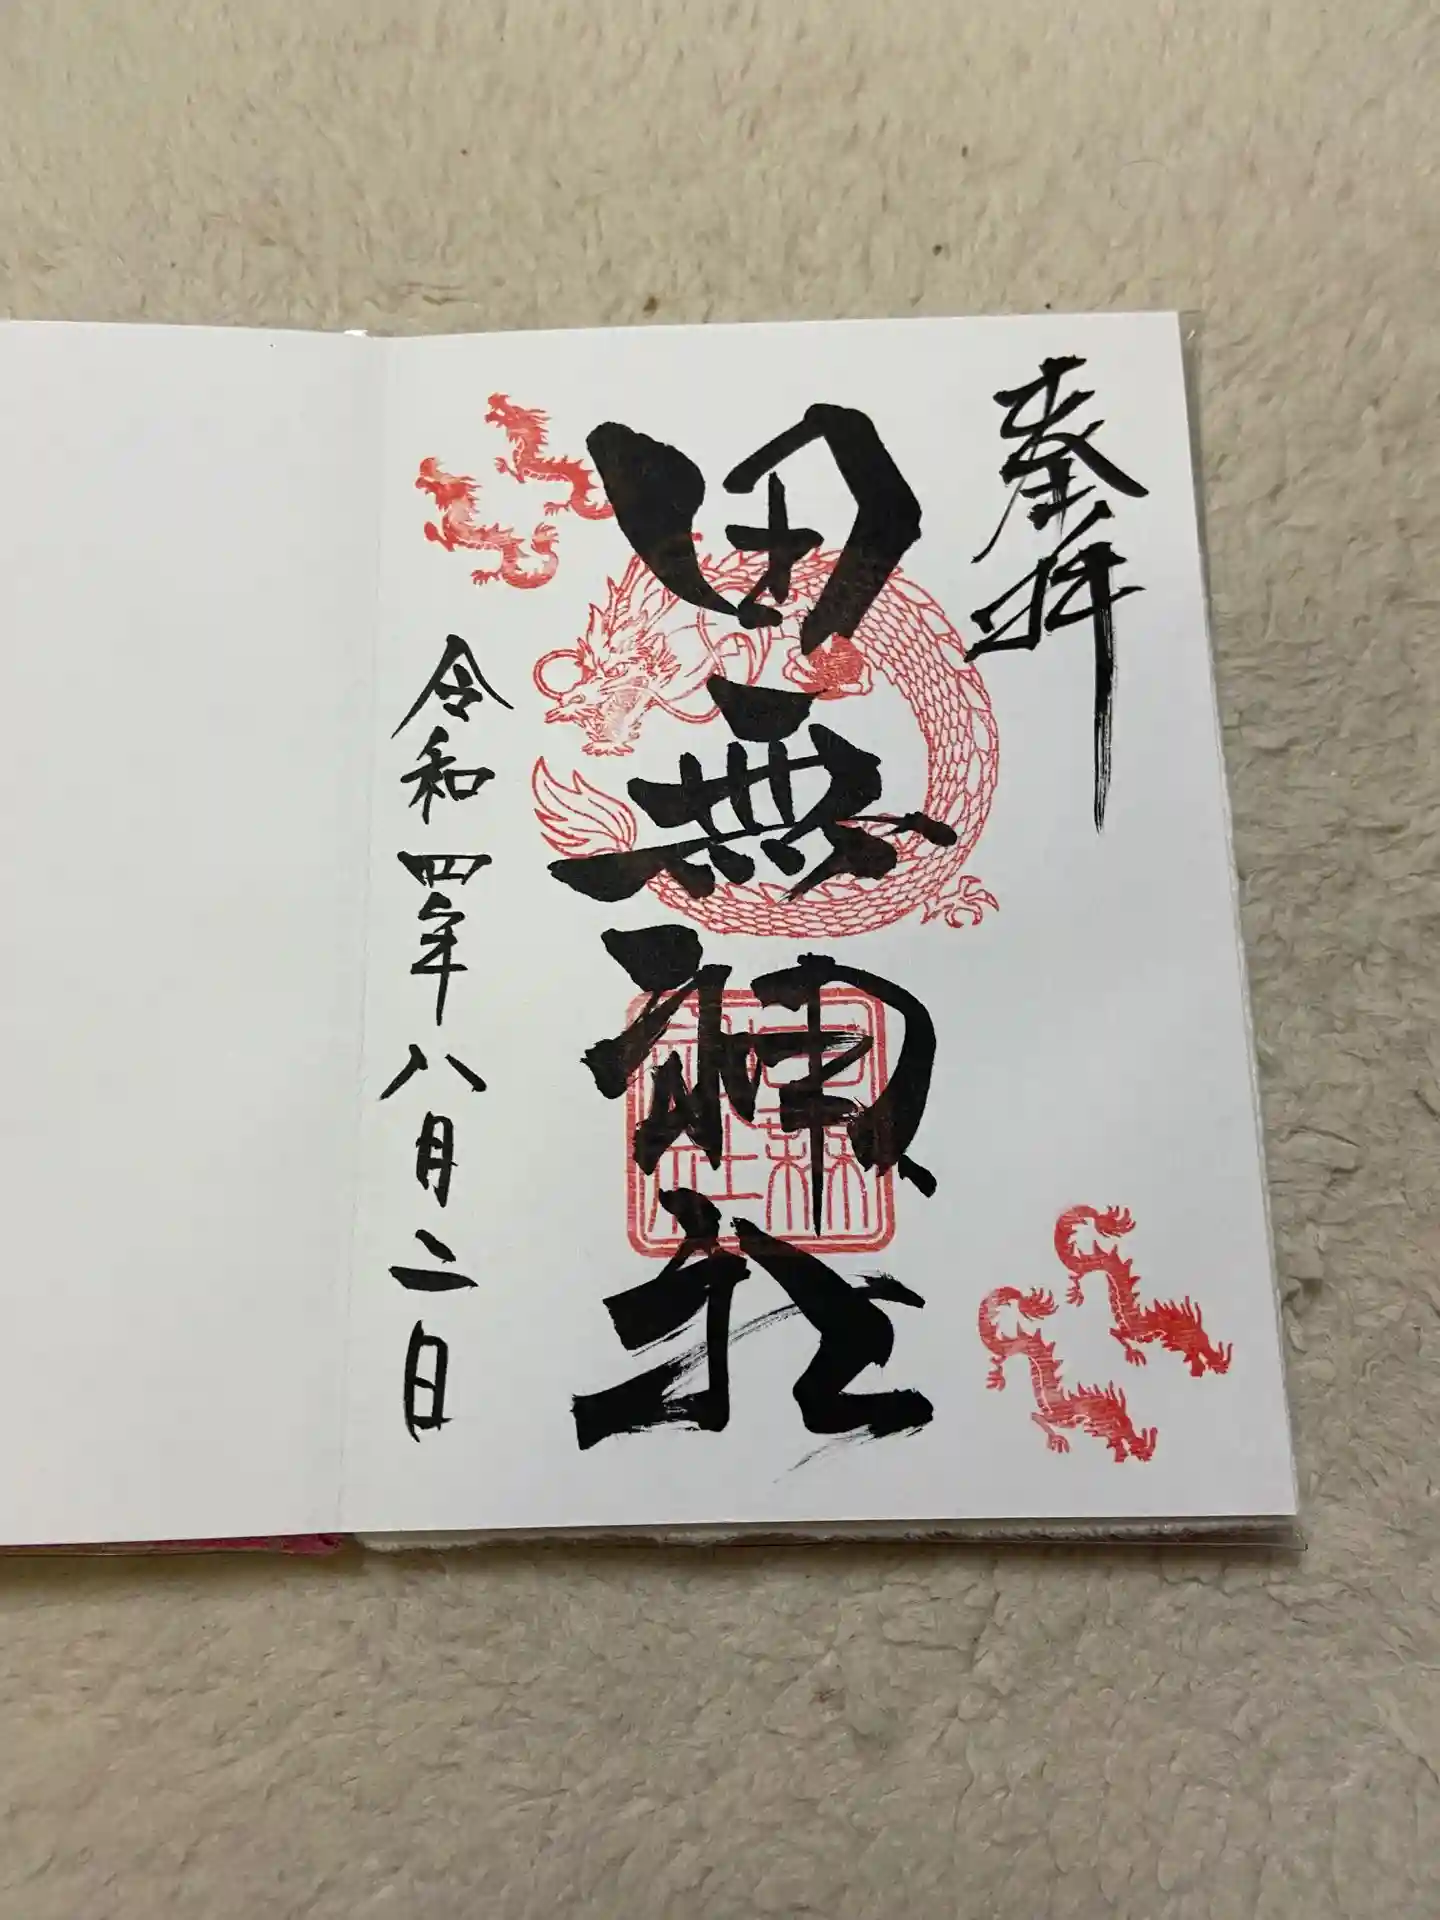 奉拝
田無神社
令和四年八月二日
田無
神社